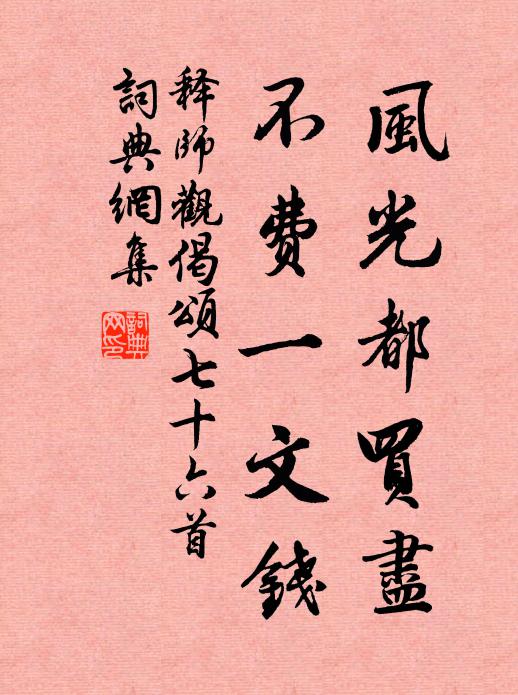 風光都買盡
不费一文錢
释師觀偈頌七十六首
詞典網集
詞典網印